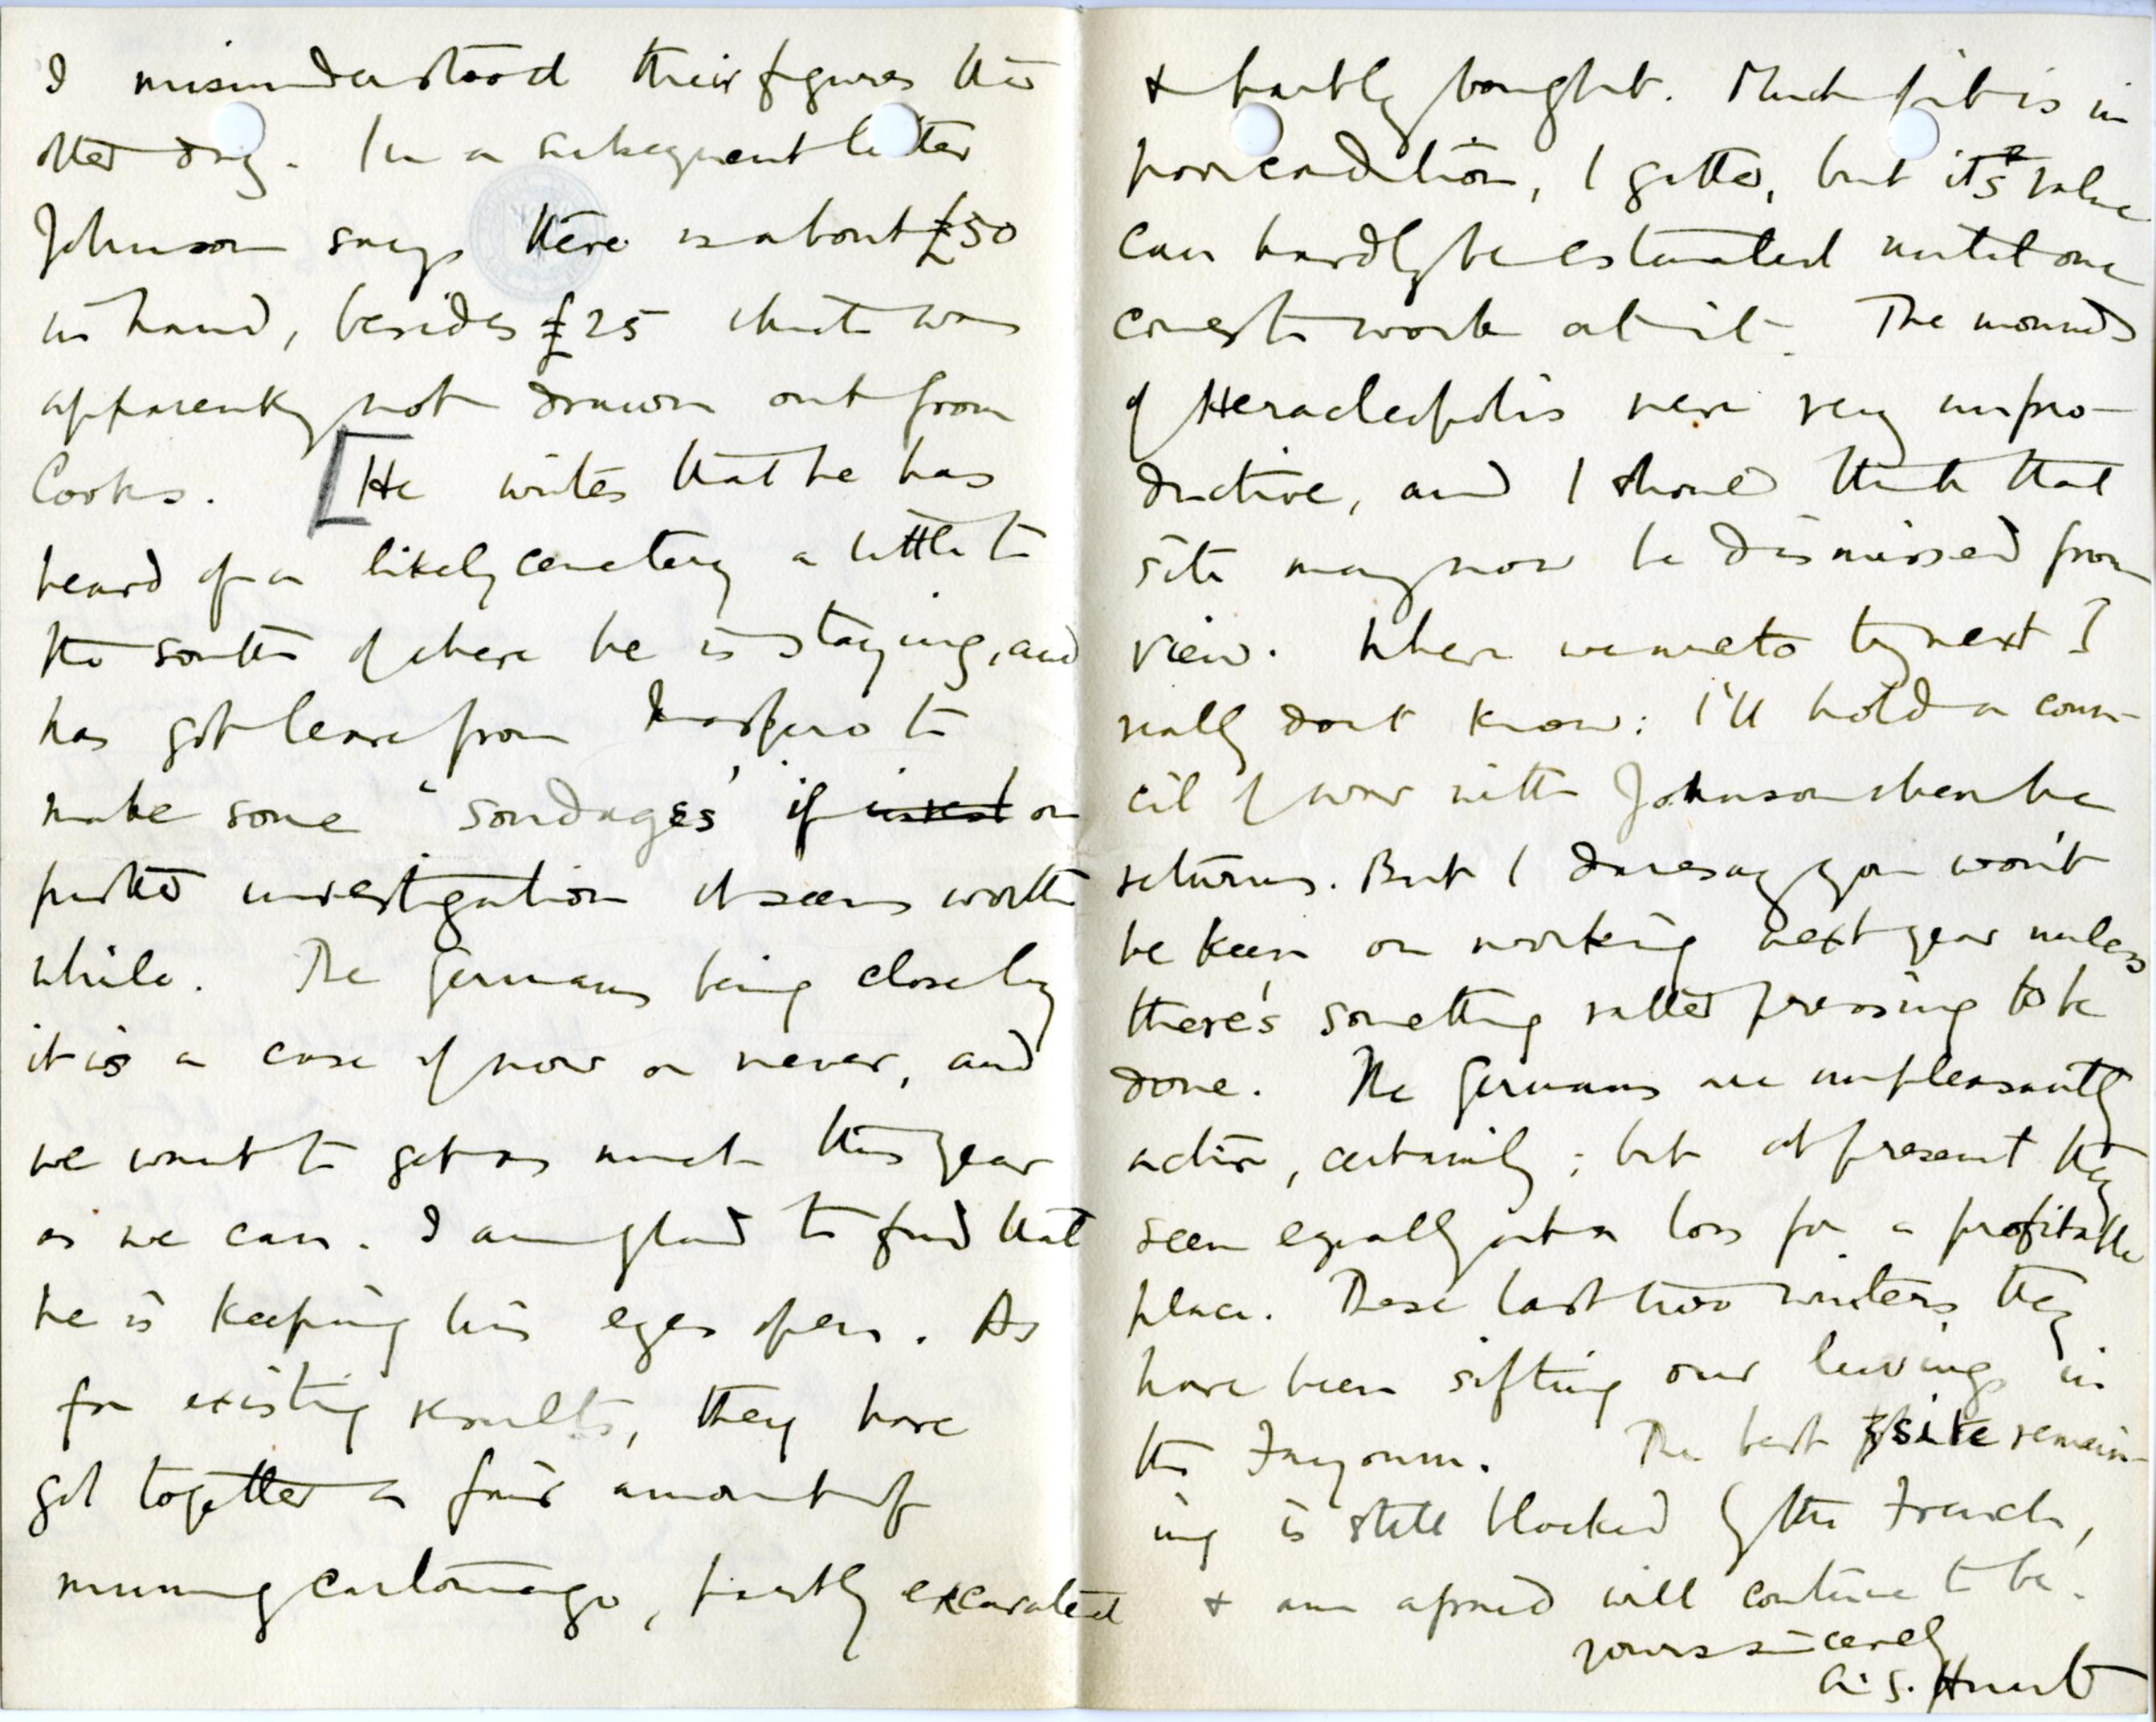 I misunderstood their figures the
other day. In a subsequent letter
Johnson says there is about £50
in hand, besides £25 which was
apparently not drawn out from
Cooks. [He writes that he has
heard of a likely cemetery a little to
the south of where he is staying, and
has got leave from Maspero to
make some 'sondages' if on
further investigation it seems worth
while. The Germans being close by
it is a case of now or never, and
we want to get as much this year
as we can. I am glad to find that
he is keeping his eyes open. As
for existing results, they have
got together a fair amount of
mummy cartonnage, partly excavated
& partly bought. Much of it is in
poor condition, I gather, but its value
can hardly be estimated until one
comes to work at it. The mounds
of Heracleopolis were very unpro-
ductive, and I should think that
site may now be dismissed from
view. Where we are to try next I
really don't know: I'll hold a coun-
cil of war with Johnson when he
returns. But I daresay you won't
be keen on working next year unless
there's something rather pressing to be
done. The Germans are unpleasantly
active, certainly; but at present they
seem equally at a loss for a profitable
place. These last two winters they
have been sifting our leavings in
the Fayoum. The best site remain-
ing is still blocked by the French,
& am afraid will continue to be.
Yours sincerely
A. S. Hunt